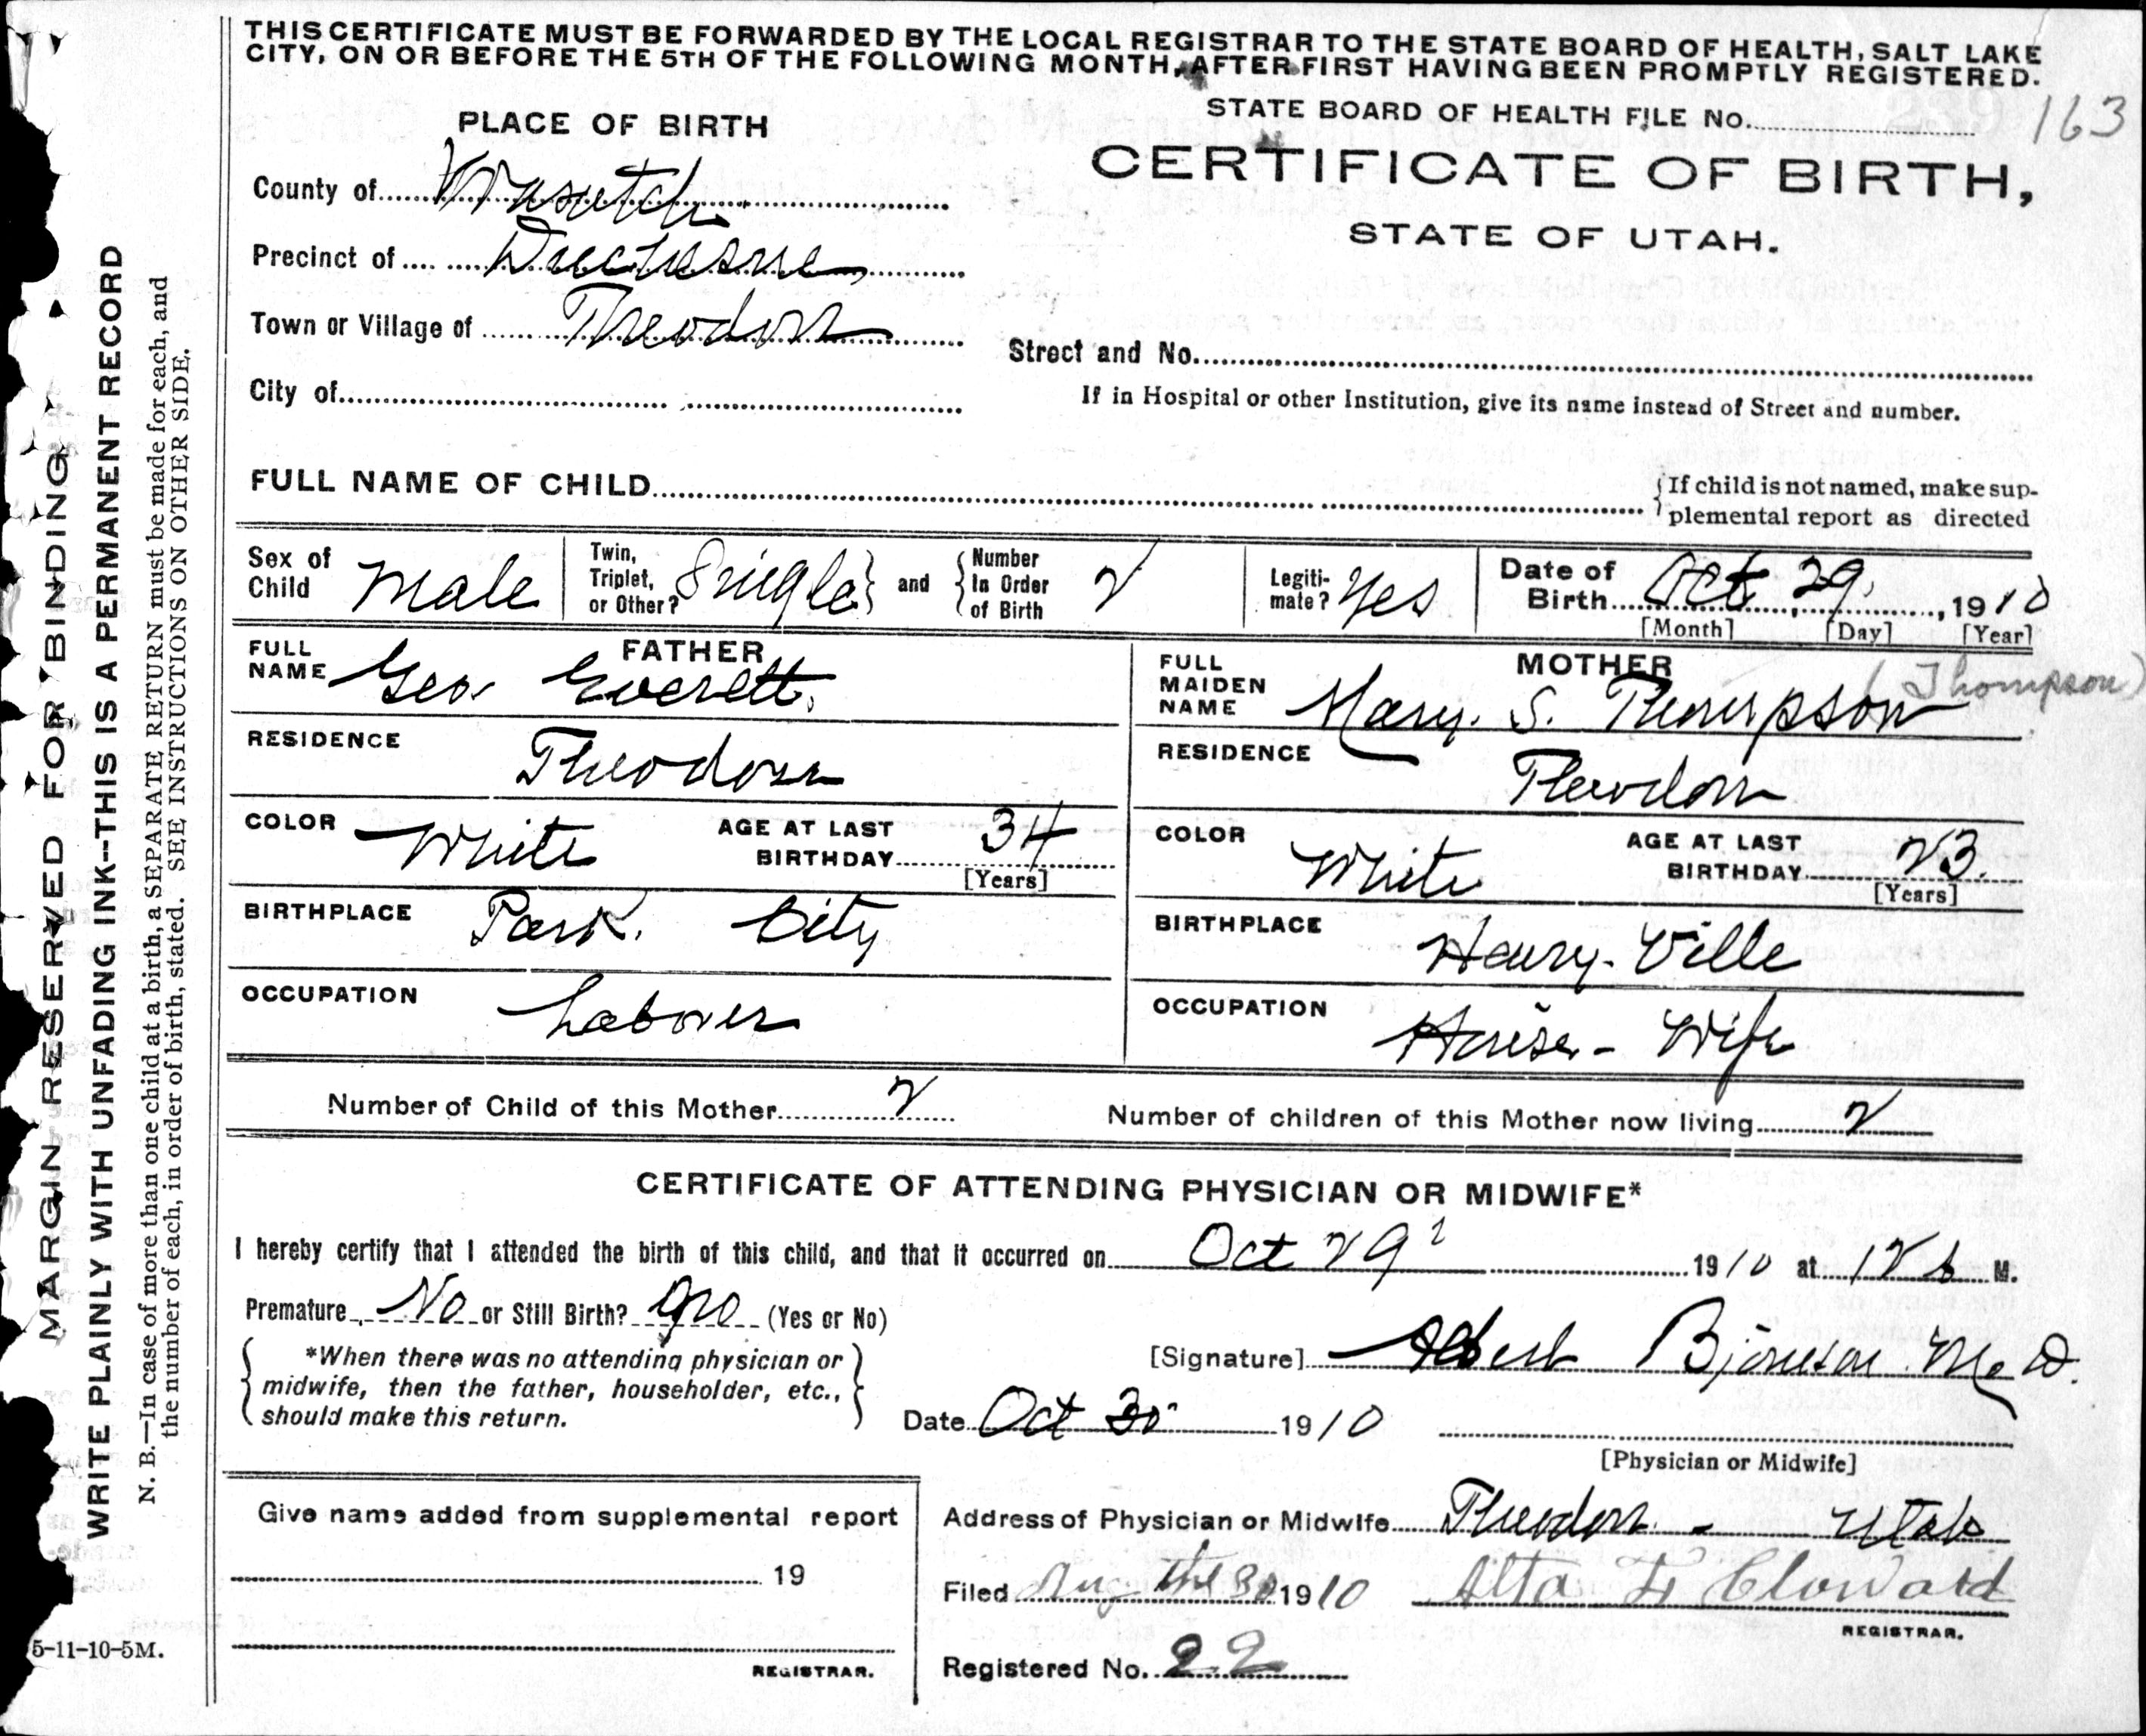 THIS CERTIFICATE MUST BE FORWARDED BY THE LOCAL REGISTRAR TO THE STATE BOARD OF HEALTH, SALT LAKE
CITY, ON OR BEFORE THE 5TH OF THE FOLLOWING MONTH, AFTER FIRST HAVING BEEN PROMPTLY REGISTERED.
STATE BOARD OF HEALTH FILE No. 163
PLACE OF BIRTH
CERTIFICATE OF BIRTH,
STATE OF UTAH.
County of Wasatch
Precinct of Duchesne
Town or Village of Theodore
Street and No.
City of
If in Hospital or other Institution, give its name instead of Street and number.
FULL NAME OF CHILD
If child is not named, make sup-
plemental report as directed
Sex of Child Male
Twin, Triplet, or Other? Single and Number In Order of Birth 2
Legiti-mate? Yes
Date of Birth Oct 29, 1910
[Month] [Day] [Year]
FATHER
FULL NAME Geo. Everett.
RESIDENCE Theodore
COLOR White AGE AT LAST BIRTHDAY 34
[Years]
BIRTHPLACE Park. City
OCCUPATION Laborer
MOTHER
FULL MAIDEN NAME Mary. S. Thompson (Thompson)
RESIDENCE Theodore
COLOR White AGE AT LAST BIRTHDAY 23.
[Years]
BIRTHPLACE Henry-Ville
OCCUPATION House-Wife
Number of Child of this Mother 2
Number of children of this Mother now living 2
CERTIFICATE OF ATTENDING PHYSICIAN OR MIDWIFE*
I hereby certify that I attended the birth of this child, and that it occurred on Oct 29 1910 at 12 M.
Premature No or Still Birth? No (Yes or No)
*When there was no attending physician or
midwife, then the father, householder, etc.,
should make this return.
[Signature] Albert M.D.
Date Oct 30 1910
[Physician or Midwife]
Give name added from supplemental report
19
REGISTRAR.
Address of Physician or Midwife Theodore - Utah
Filed Aug the 30 1910 Alta F Cloward
REGISTRAR.
Registered No. 22
5-11-10-5M.
MARGIN RESERVED FOR BINDING
WRITE PLAINLY WITH UNFADING INK--THIS IS A PERMANENT RECORD
N. B.—In case of more than one child at a birth, a SEPARATE RETURN must be made for each, and
the number of each, in order of birth, stated. SEE INSTRUCTIONS ON OTHER SIDE.